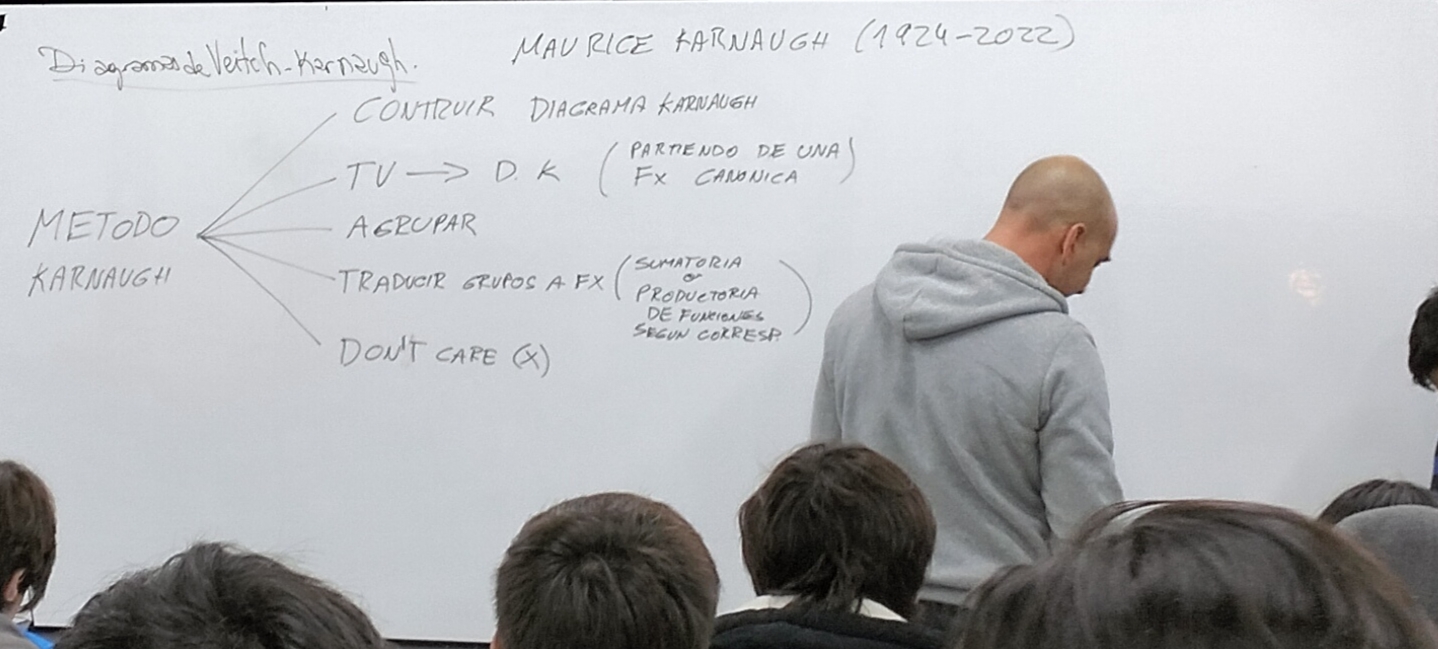 Diagramas de Veitch-Karnaugh.
MAURICE KARNAUGH (1924-2022)
CONTRUIR DIAGRAMA KARNAUGH
TV → D. K (PARTIENDO DE UNA
FX CANONICA)
METODO
KARNAUGH
AGRUPAR
TRADUCIR GRUPOS A FX (SUMATORIA
o
PRODUCTORIA
DE FUNCIONES
SEGUN CORRESP.)
DON'T CARE (X)